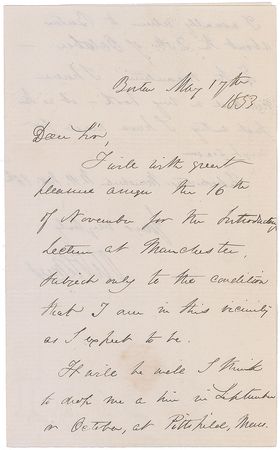 Boston May 17th
1853
Dear Sir,
I will with great
pleasure assign the 16th
of November for the Introductory
Lecture at Manchester,
subject only to the condition
that I am in this vicinity
as I expect to be.
It will be well I think
to drop me a line in September
or October, at Pittsfield, Mass.